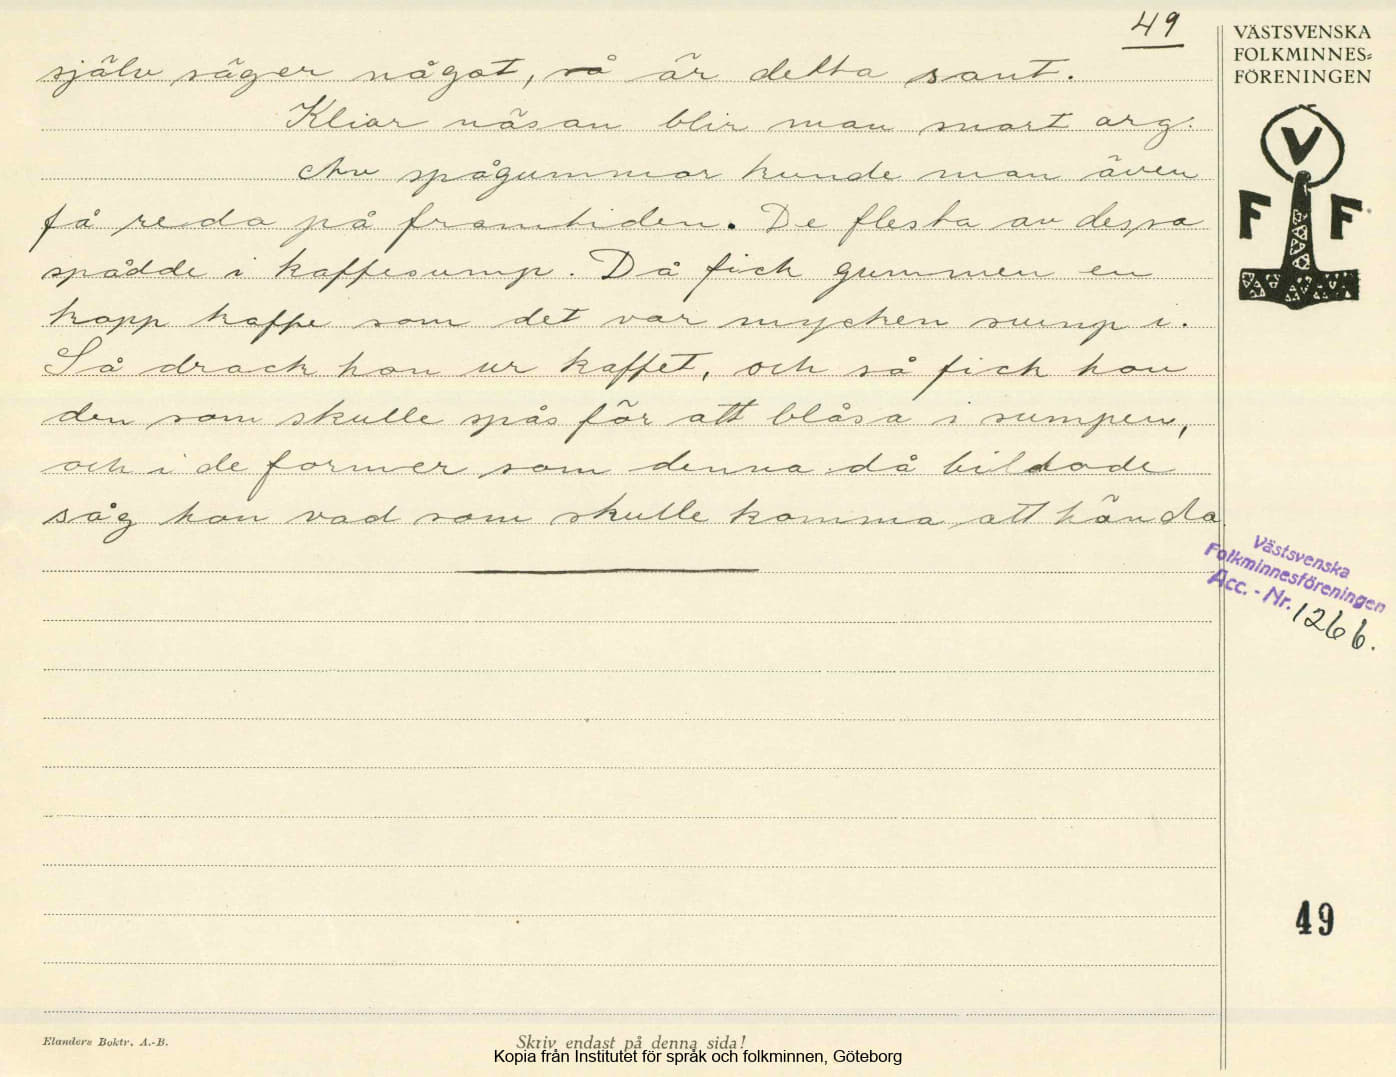 49
själv säger något, så är detta sant.
Kliar näsan blir man snart arg.
Av spågummor kunde man även
få reda på framtiden. De flesta av dessa
spådde i kaffesump. Då fick gumman en
kopp kaffe som det var mycken sump i.
Så drack hon ur kaffet, och så fick hon
den som skulle spås för att blåsa i sumpen,
och i de former som denna då bildade
såg hon vad som skulle komma att hända.
VÄSTSVENSKA
FOLKMINNES-
FÖRENINGEN
V
F F
Västsvenska
Folkminnesföreningen
Acc. - Nr. 1266.
49
Elanders Boktr. A.-B.
Skriv endast på denna sida!
Kopia från Institutet för språk och folkminnen, Göteborg